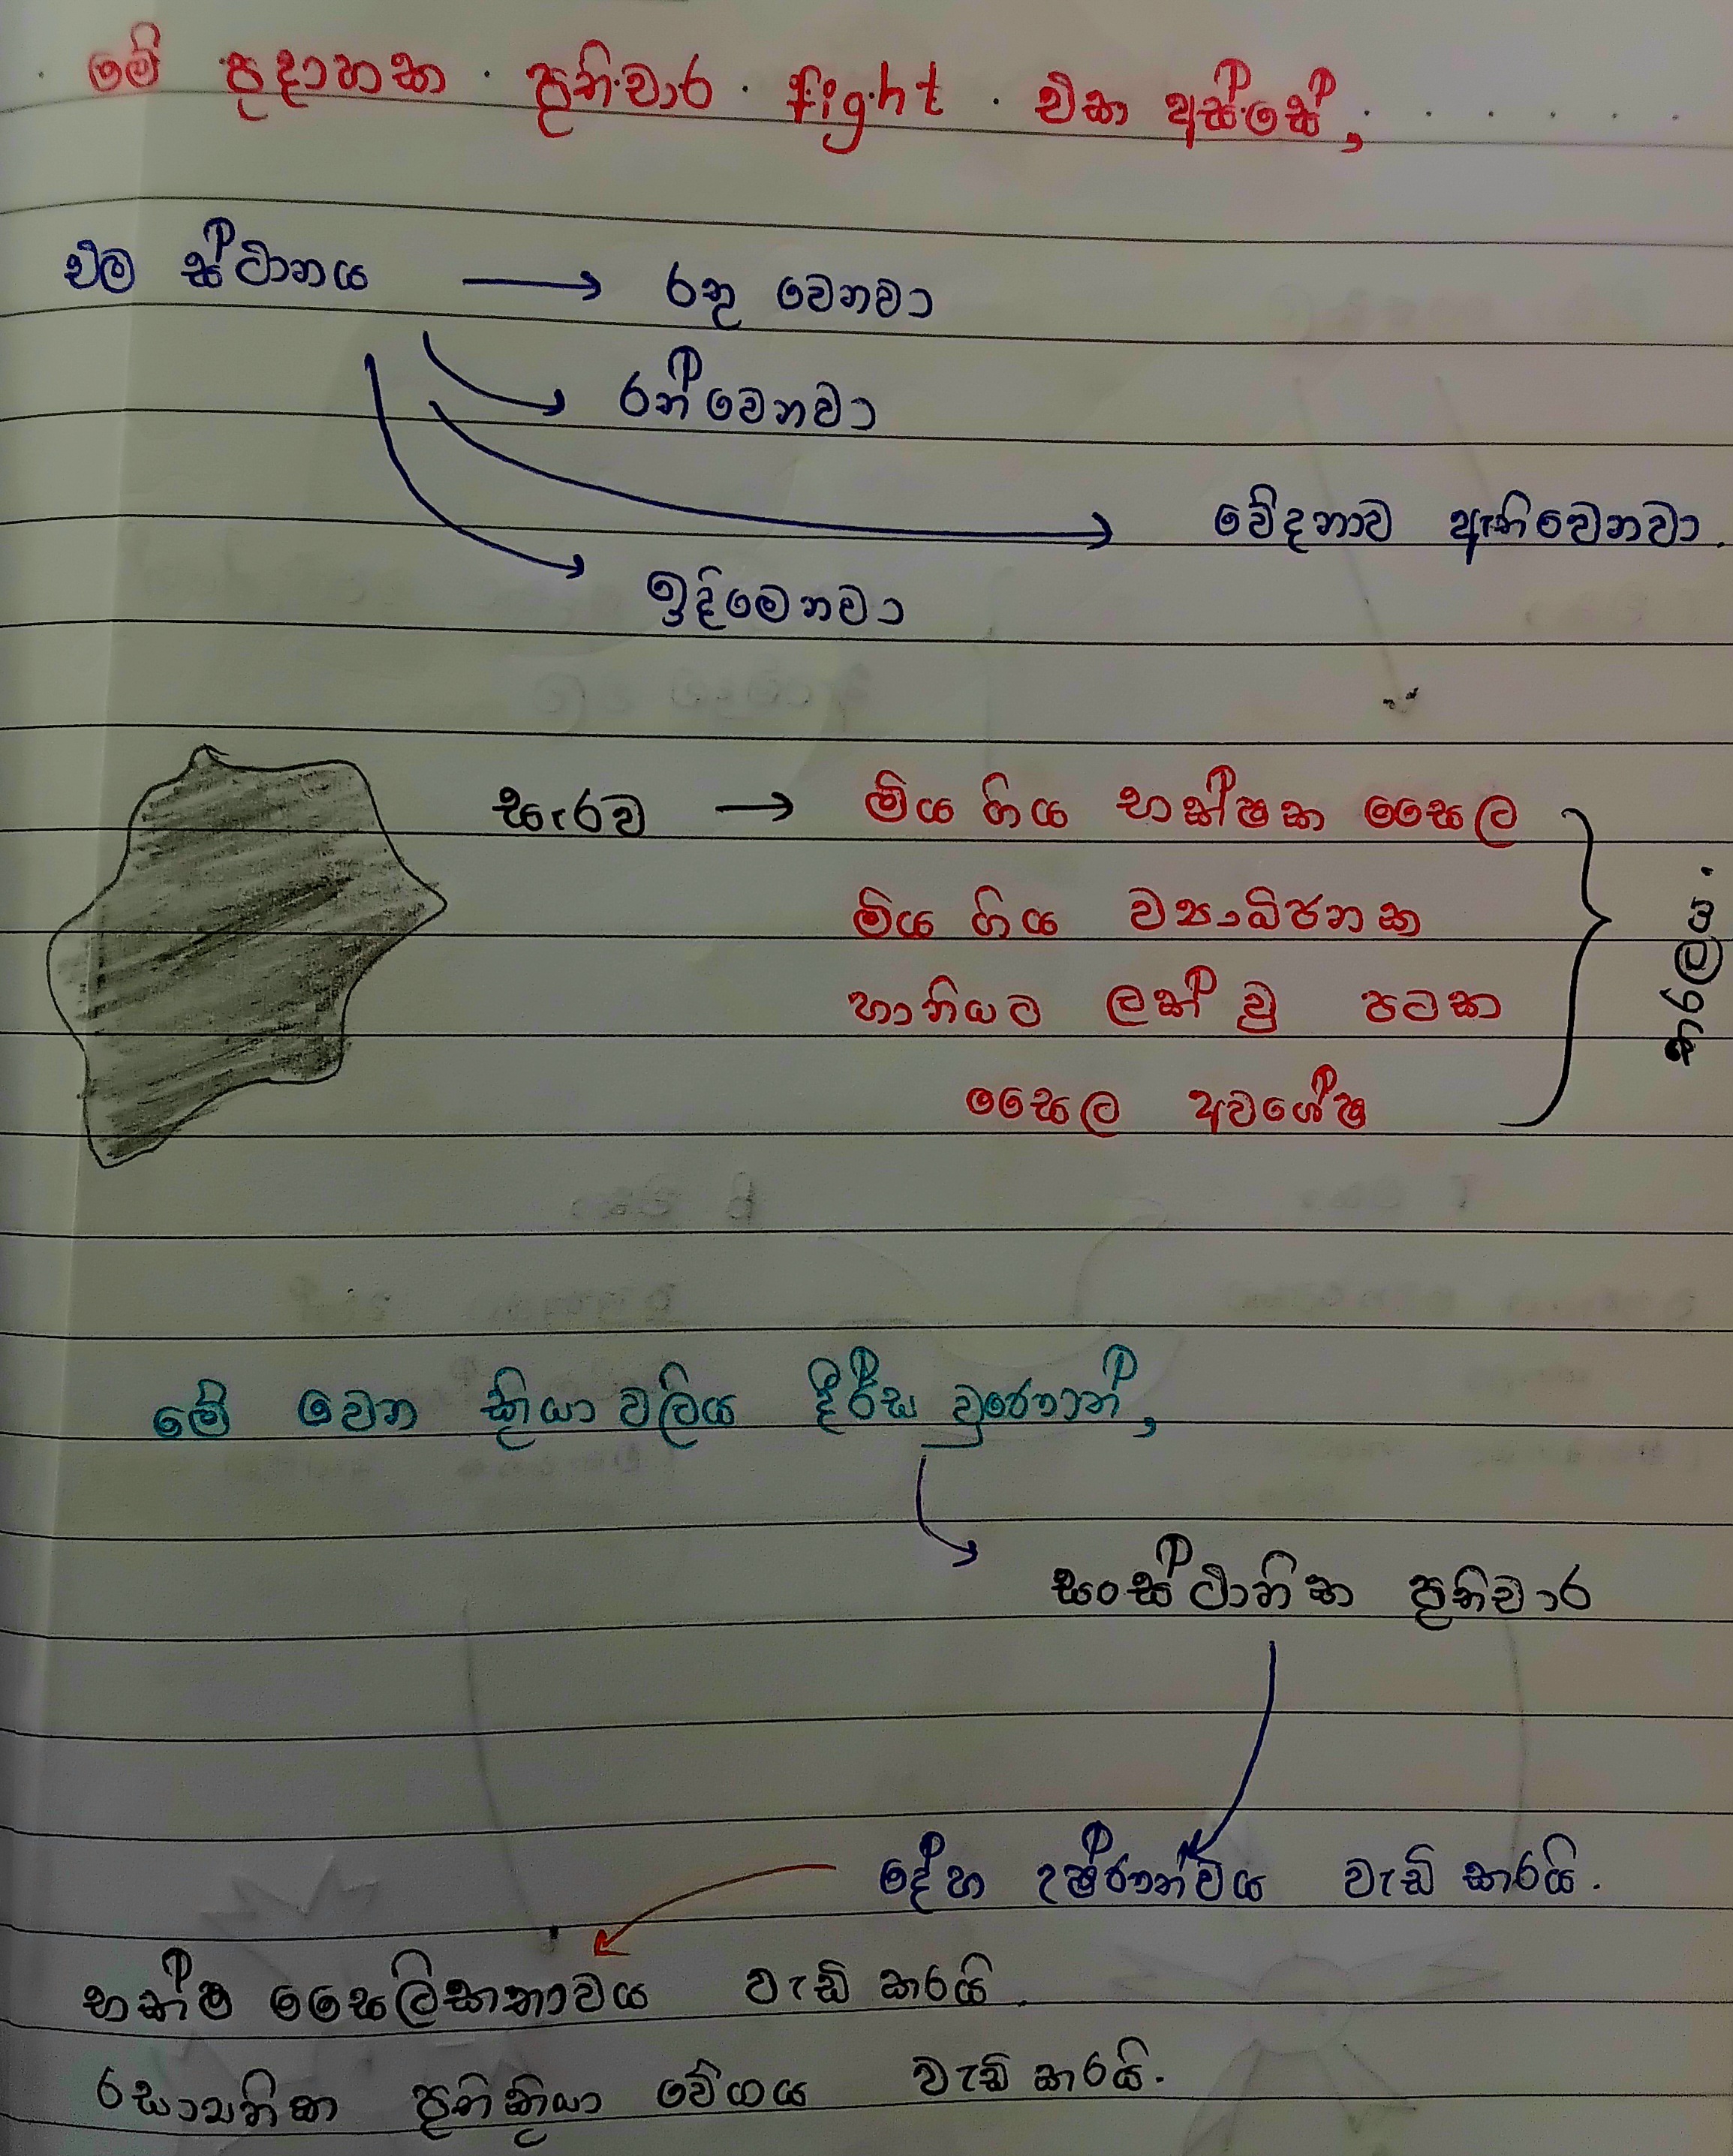 මේ ප්‍රදාහක ප්‍රතිචාර fight එක අස්සේ,
එම ස්ථානය → රතු වෙනවා
රත්වෙනවා
වේදනාව ඇතිවෙනවා.
ඉදිමෙනවා
සැරව → මිය ගිය භක්ෂක සෛල
මිය ගිය ව්‍යාධිජනක
හානියට ලක් වූ පටක
සෛල අවශේෂ
තරලය.
මේ වෙන ක්‍රියාවලිය දීර්ඝ වුනොත්,
සංස්ථානික ප්‍රතිචාර
දේහ උෂ්ණත්වය වැඩි කරයි.
භක්ෂ සෛලිකතාවය වැඩි කරයි.
රසායනික ප්‍රතික්‍රියා වේගය වැඩි කරයි.